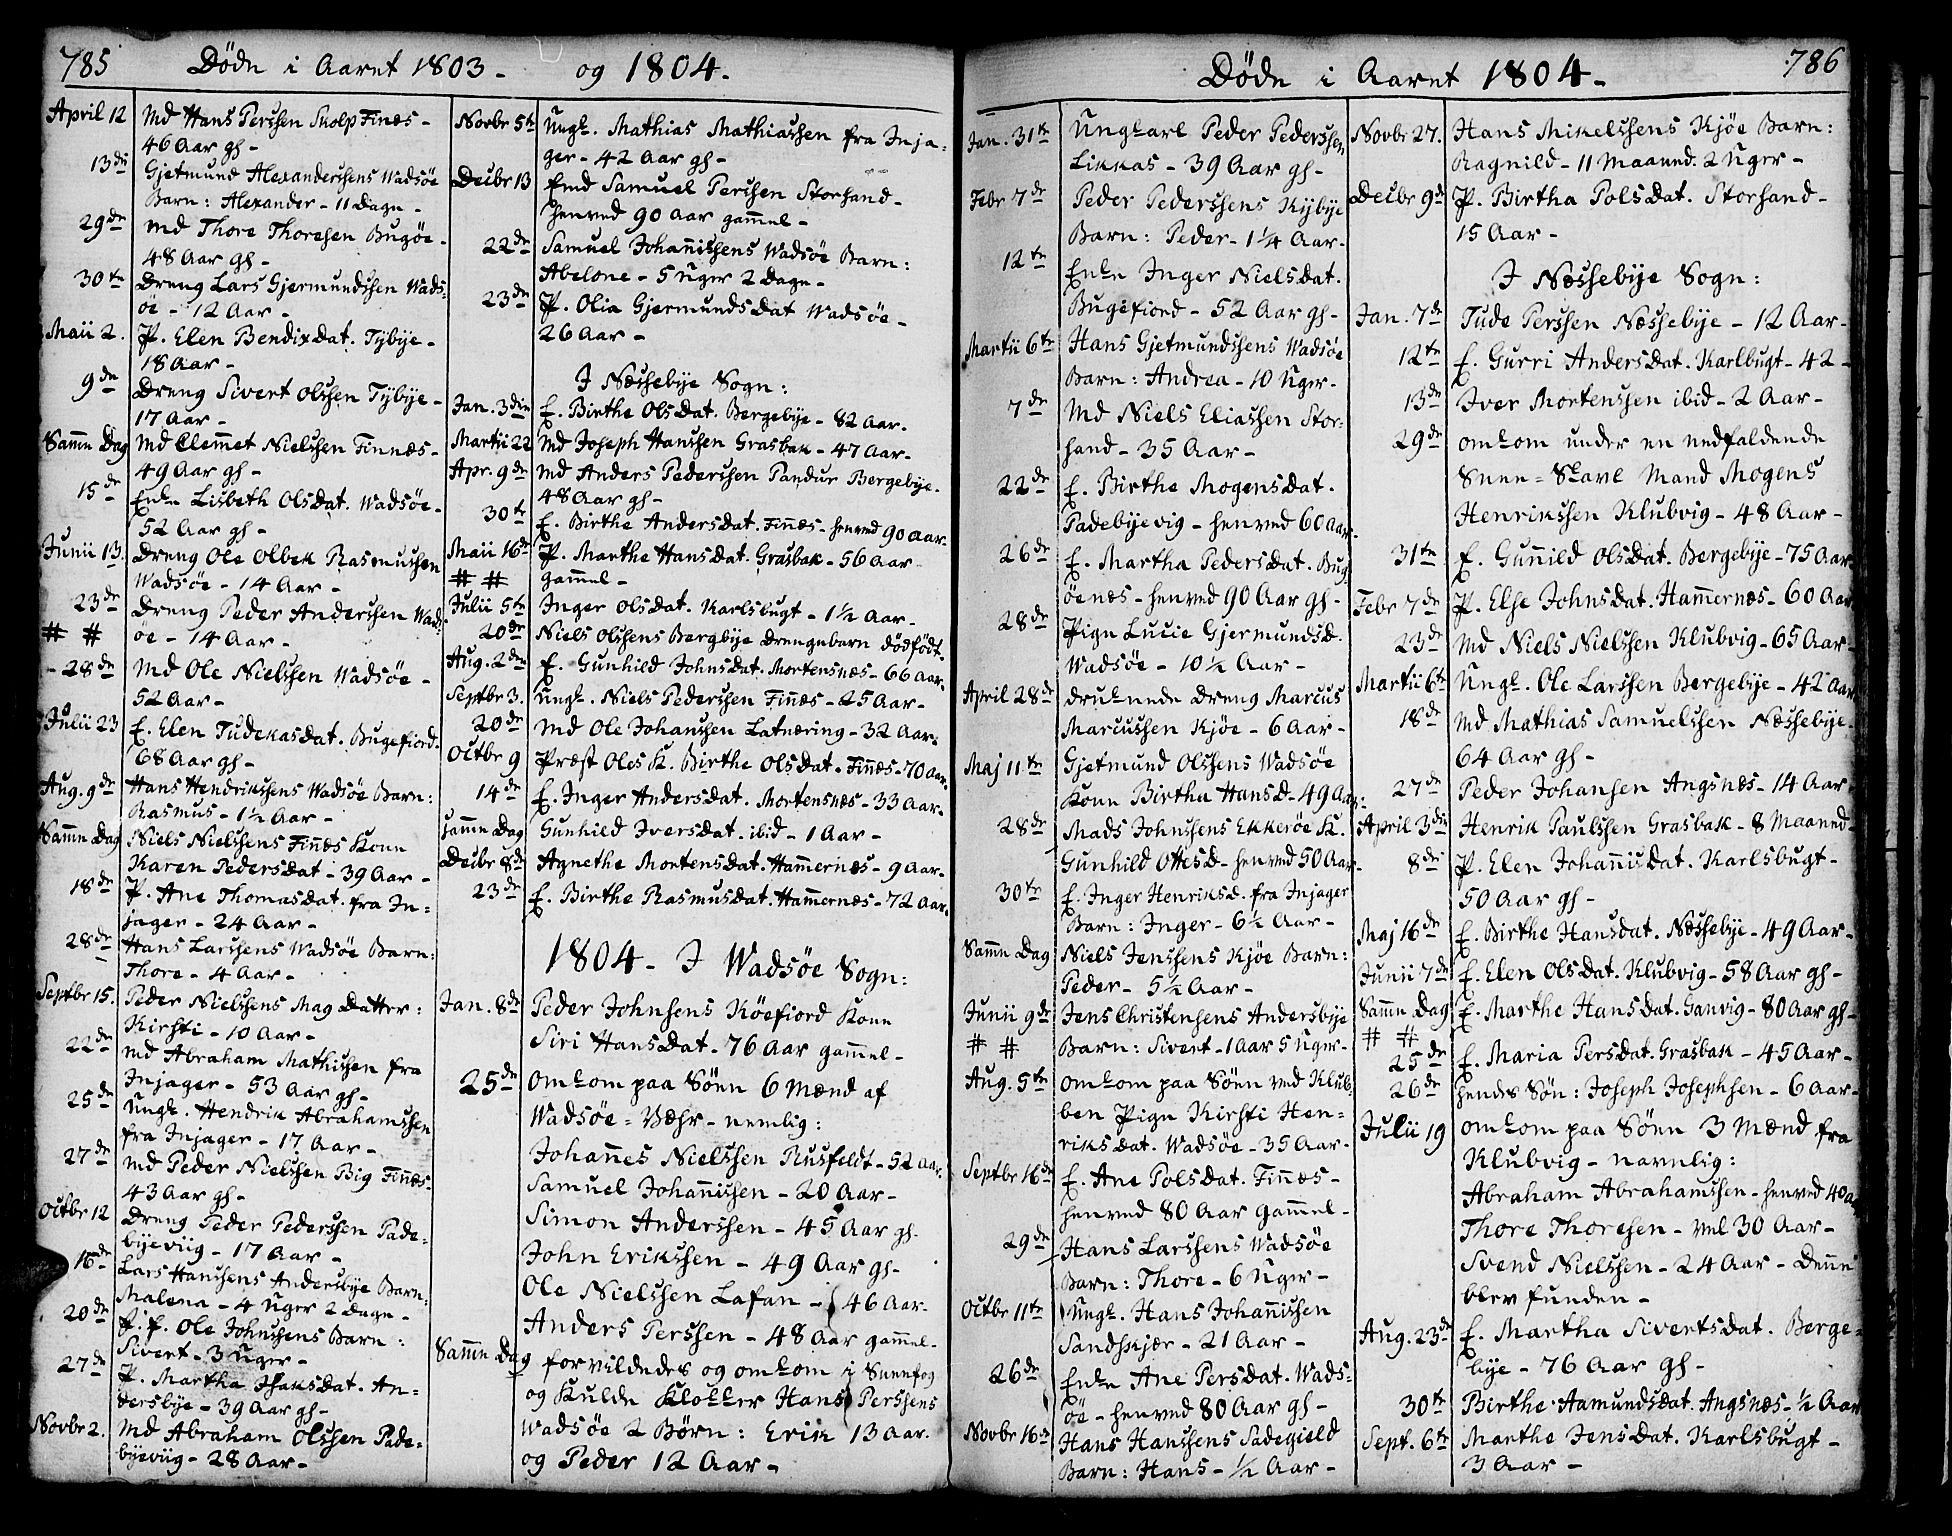 785 Döde i Aaret 1803 - og 1804 -
April 12 Md Hans Perssen Skolp Finæs -
46 Aar gl -
13de Gjetmund Alexanderssens Wadsöe
Barn: Alexander - 11 Dage -
29de Md Thore Thoresen Bugöe -
48 Aar gl -
30te Dreng Lars Gjermundssen Wads=
öe - 12 Aar -
Maii 2. P. Elen Bendixdat. Tybye -
18 Aar -
9de Dreng Sivert Olssen Tybye -
17 Aar -
Samme Dag Md Clemmet Nielssen Finnæs -
49 Aar gl -
15de Enke Lisbeth Olsdat. Wadsöe -
52 Aar gl -
Junii 13. Dreng Ole Olbek Rasmussen
Wadsöe - 14 Aar -
23de Dreng Peder Anderssen Wads
# # öe - 14 Aar -
- 28de Md Ole Nielssen Wadsöe -
52 Aar -
Julii 23 E. Elen Tudekasdat. Bugefiord.
68 Aar gl -
Aug. 9de Hans Hendrikssens Wadsöe Barn:
Rasmus - 1½ Aar -
Samme Dag Niels Nielssens Finæs Kone
Karen Pedersdat - 39 Aar -
18de P. Ane Thomasdat. fra In=
jager - 24 Aar -
28de Hans Larssens Wadsöe Barn:
Thore - 4 Aar -
Septbr 15. Peder Nielssens Mag Datter:
Kirsti - 10 Aar -
22de Md Abraham Mathissen fra
Injager - 53 Aar gl -
25de Ungk. Hendrik Abrahamssen
fra Injager - 17 Aar -
27de Md Peder Nielssen Big Finæs -
43 Aar gl -
Octbr 12 Dreng Peder Pederssen Pade=
byeviig - 17 Aar -
16de Lars Hanssens Andersbye Barn:
Malena - 4 Uger 2 Dage -
20de P. P. Ole Johnssens Barn:
Sivert - 3 Uger -
27de P. Martha Isaksdat. An=
dersbye - 39 Aar gl -
Novbr 2. Md Abraham Olssen Pade=
byeviig - 28 Aar -
Novbr 5te Ungk. Mathias Mathiassen fra Inja=
ger - 42 Aar gl -
Decbr 13 Emd Samuel Perssen Storhand -
henved 90 Aar gammel -
22de Samuel Johanissens Wadsöe Barn:
Abelone - 5 Uger 2 Dage -
23de P. Olia Gjermundsdat Wadsöe -
26 Aar -
I Næssebye Sogn:
Jan. 3die E. Birthe Olsdat. Bergebye - 82 Aar.
Martii 22 Md Joseph Hanssen Grasbak - 47 Aar -
Apr. 9de Md Anders Pederssen Pandur Bergebye.
48 Aar gl -
30te E. Birthe Andersdat. Finæs - henved 90 Aar -
Maii 16de P. Marthe Hansdat. Grasbak - 56 Aar
# # gammel -
Julii 5te Inger Olsdat. Karlsbugt - 1½ Aar -
20de Niels Olssens Bergbye Drengebarn dödfödt.
Aug. 2den E. Gunhild Johnsdat. Mortensnæs - 66 Aar.
Septbr 3. Ungk. Niels Pederssen Finæs - 25 Aar -
20de Md Ole Johanssen Latnæring - 32 Aar.
Octbr 9 Præst Oles K. Birthe Olsdat. Finæs - 70 Aar.
14de E. Inger Andersdat. Mortensnæs - 33 Aar.
samme Dag Gunhild Iversdat. ibid - 1 Aar -
Decbr 8de Agnethe Mortensdat. Hammernæs - 9 Aar.
23de E. Birthe Rasmusdat. Hammernæs - 72 Aar.
1804 - I Wadsöe Sogn:
Jan. 8de Peder Johnsens Köefiord Kone
Siri Hansdat - 76 Aar gammel -
25de omkom paa Söen 6 Mænd af
Wadsöe = Væhr - nemlig:
Johannes Nielssen Rusfeldt - 52 Aar.
Samuel Johanissen - 20 Aar -
Simon Anderssen - 45 Aar gl -
John Erikssen - 49 Aar gl -
Ole Nielssen Lafan - 46 Aar -
Anders Perssen - 48 Aar gammel -
Samme Dag forvildedes og omkom i Sneefog
og Kulde Klokker Hans Perssens
Wadsöe 2 Börn: Erik 13 Aar.
og Peder 12 Aar -
Döde i Aaret 1804 - 786
Jan. 31te Ungkarl Peder Pederssen
Likkas - 39 Aar gl -
Febr 7de Peder Pederssens Kybye
Barn: Peder - 1¼ Aar -
12te Enke Inger Nielsdat.
Bugefiord - 52 Aar gl -
Martii 6te Hans Gjetmundssens Wadsöe
Barn: Andrea - 10 Uger -
7de Md Niels Eliassen Stor=
hand - 35 Aar -
22de E. Birthe Mogensdat.
Padebyevig - henved 60 Aar -
26de E. Martha Pedersdat. Bug
öenæs - henved 90 Aar gl -
28de Pige Lucie Gjermundsd.
Wadsöe - 10½ Aar -
April 28de druknede Dreng Marcus
Marcussen Kjöe - 6 Aar -
Maj 11te Gjetmund Olssens Wadsöe
Kone Birtha Hansd - 49 Aar.
28de Mads Johnssens Ekkeröe K.
Gunhild Ottesd - henved 50 Aar -
30te E. Inger Henriksd. fra Injager
Barn: Inger - 6½ Aar -
Samme Dag Niels Jenssens Kjöe Barn:
Peder - 5½ Aar -
Junii 9de Jens Christensens Andersbye
# # Barn: Sivert - 1 Aar 5 Uger -
Aug. 5te omkom paa Söen ved Klub=
ben Pige Kirsti Hen=
riksdat. Wadsöe - 35 Aar -
Septbr 16de E. Ane Polsdat. Finæs -
henved 80 Aar gammel -
29de Hans Larssens Wadsöe
Barn: Thore - 6 Uger -
Octbr 11te Ungk. Hans Johanissen
Sandskjær - 21 Aar -
26de Enke Ane Persdat. Wads=
öe - henved 80 Aar gl -
Novbr 16de Hans Hanssens Sadegield
Barn: Hans - ½ Aar -
Novbr 27. Hans Mikelssens Kjöe Barn:
Ragnild - 11 Maaned. 2 Uger -
Decbr 9de P. Birtha Polsdat. Storhand -
15 Aar -
I Næssebye Sogn:
Jan. 7de Tude Perssen Næssebye - 12 Aar -
12te E. Gurri Andersdat. Karlbugt - 42 -
13de Iver Mortenssen ibid - 2 Aar -
29de omkom under en nedfaldende
Snee = Skavl Mand Mogens
Henrikssen Klubvig - 48 Aar -
31te E. Gunnild Olsdat. Bergebye - 75 Aar
Febr 7de P. Else Johnsdat. Hammernæs - 60 Aar
23de Md Niels Nielssen Klubvig - 65 Aar -
Martii 6te Ungk. Ole Larssen Bergebye - 42 Aar
18de Md Mathias Samuelssen Næssebye -
64 Aar gl -
27de Peder Johansen Angsnæs - 14 Aar
April 3die Henrik Paulssen Grasbak - 8 Maaned -
8de P. Elen Johannisdat. Karlsbugt -
50 Aar gl -
Maj 16de E. Birthe Hansdat. Næssebye - 49 Aar -
Junii 7de E. Elen Olsdat. Klubvig - 58 Aar gl -
Samme Dag E. Marthe Hansdat. Ganvig - 80 Aar gl -
# #
25de E. Maria Persdat. Grasbak - 45 Aar -
26de hendes Sön: Joseph Josephsen - 6 Aar -
Julii 19 omkom paa Söen 3 Mænd fra
Klubvig - navnlig:
Abraham Abrahamssen - henved 40 Aar
Thore Thoresen - vel 30 Aar -
Svend Nielssen - 24 Aar - Denne
blev funden -
Aug. 23de E. Martha Sivertsdat. Berge=
bye - 76 Aar gl -
30te Birthe Aamundsdat. Angsnæs - ½ Aar
Sept. 6te Marthe Jensdat. Karlsbugt -
3 Aar -